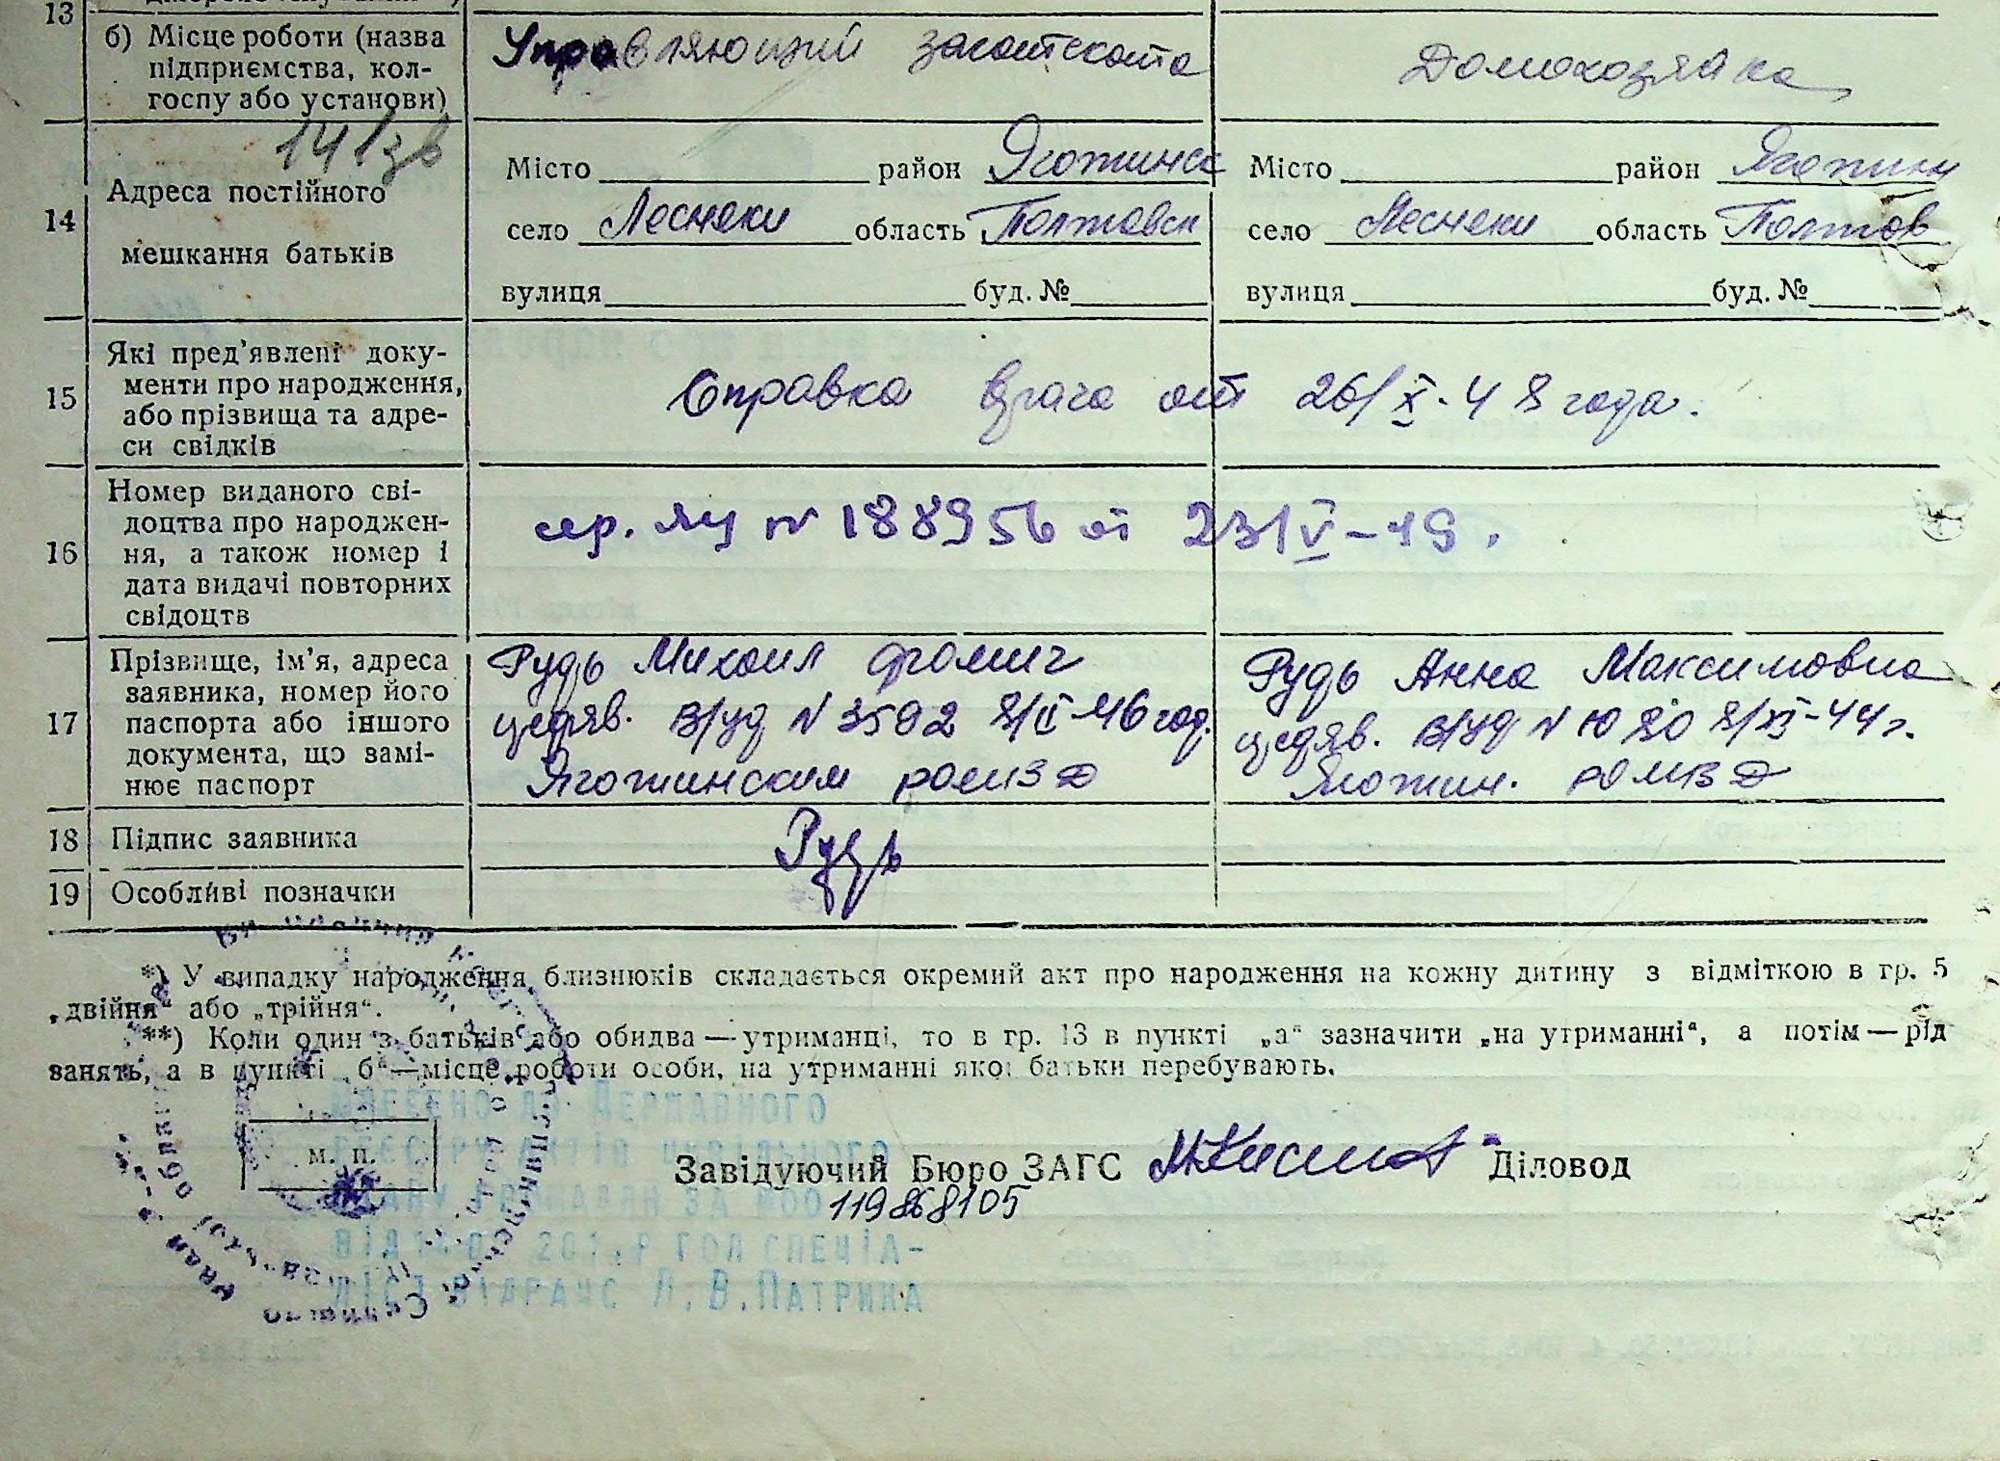 13
б) Місце роботи (назва підприємства, колгоспу або установи)
Управляющий
Домохозяйка
14
Адреса постійного
мешкання батьків
Місто район Яготинск Місто район Яготинк
село Лесняки область Полтавск село Лесняки область Полтов
вулиця буд. № вулиця буд. №
15
Які пред'явлені доку-
менти про народження,
або прізвища та адре-
си свідків
Справка врача от 26/X-48 года.
16
Номер виданого сві-
доцтва про народжен-
ня, а також номер і
дата видачі повторних
свідоцтв
сер. ЯЦ № 188956 от 23/V-49.
17
Прізвище, ім'я, адреса
заявника, номер його
паспорта або іншого
документа, що замі-
нює паспорт
Рудь Михаил Фомич
В/уд N 3592 8/II-46 год.
Яготинским РОМВД
Рудь Анна Максимовна
В/уд N 1080 8/XI-44 г.
Яготин. РОМВД
18 Підпис заявника
Рудь
19 Особливі позначки
*) У випадку народження близнюків складається окремий акт про народження на кожну дитину з відміткою в гр. 5
„двійня“ або „трійня“.
**) Коли один з батьків або обидва — утриманці, то в гр. 13 в пункті „а“ зазначити „на утриманні“, а потім — рід
занять, а в пункті „б“ — місце роботи особи, на утриманні якої батьки перебувають.
м. п.
Завідуючий Бюро ЗАГС Діловод
119868105
Внесено до Державного
реєстру актів цивільного
стану громадян за
гол спеціа-
ліст відрацс Л. В. Патрина